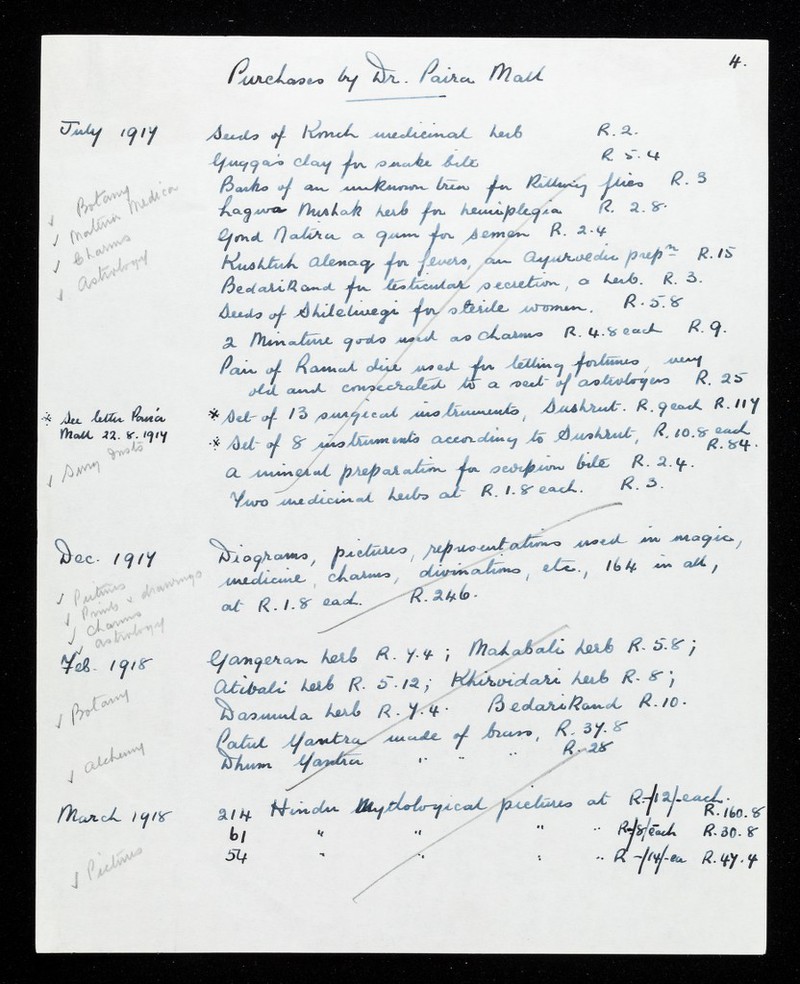 4.
Purchases by Dr. Paira Mall
July 1917 Seeds of Konch medicinal herb R. 2.
Gugga's clay for snake bite R 5.4
Barks of an unknown tree for killing flies R. 3
Botany
Materia Medica
Charms
Astrology
Lagwa Mishak herb for hemiplegia R. 2.8.
Gond Natira a gum for semen R. 2.4
Kushtuh Alenag for fevers, an Ayurvedic prepn R. 15
BedariKand for testicular secretion, a herb. R. 3.
Seeds of Shiblivegi for sterile women. R. 5.8
2 Minature gods used as charms R. 4.8 each R. 9.
Pair of Ramal dice used for telling fortunes, very
old and consecrated to a sect of astrologers R. 25
* See letter Paira * Set of 13 surgical instruments, Sushrut. R. 9 each R. 117
Mall 22.8.1917 * Set of 8 instruments according to Sushrut, R. 10.8 each
R. 84.
Surg Insts
A mineral preparation for scorpion bite R. 2.4.
Two medicinal herbs at R. 1.8 each. R. 3.
Dec. 1917 Diagrams, pictures, representations used in magic,
medicine, charms, divinations, etc., 164 in all,
at R. 1.8 each. R. 246.
Pictures
Prints & drawings
Charms
Astrology
Feb. 1918 Gangeran herb R. 7.4 ; Mahabali herb R. 5.8 ;
Atibali herb R. 5.12 ; Khirvidari herb R. 8 ;
Botany
Dasmula herb R. 7.4. BedariKand R. 10.
Catul Yantra made of brass, R. 37.8
Dhum Yantra " " " R. 28
Alchemy
March 1918 214 Hindu Mythological pictures at R-/12/-each.
R. 160.8
61 " " " " R-/8/each R. 30.8
54 " " " " R -/14/-ea R. 47.4
Pictures